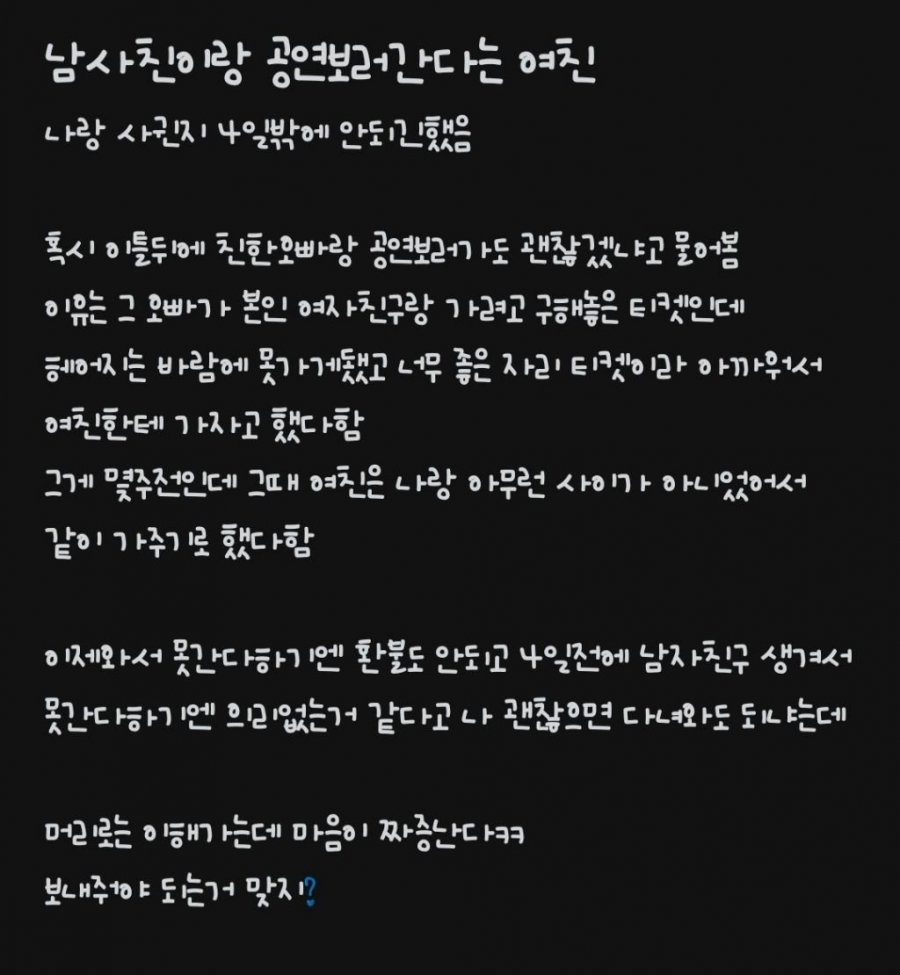 남사친이랑 공연보러간다는 여친
나랑 사귄지 4일밖에 안되긴했음
혹시 이틀뒤에 친한오빠랑 공연보러가도 괜찮겠냐고 물어봄
이유는 그 오빠가 본인 여자친구랑 가려고 구해놓은 티켓인데
헤어지는 바람에 못가게됐고 너무 좋은 자리 티켓이라 아까워서
여친한테 가자고 했다함
그게 몇주전인데 그때 여친은 나랑 아무런 사이가 아니었어서
같이 가주기로 했다함
이제와서 못간다하기엔 환불도 안되고 4일전에 남자친구 생겨서
못간다하기엔 의리없는거 같다고 나 괜찮으면 다녀와도 되냐는데
머리로는 이해가는데 마음이 짜증난다ㅋㅋ
보내줘야 되는거 맞지?